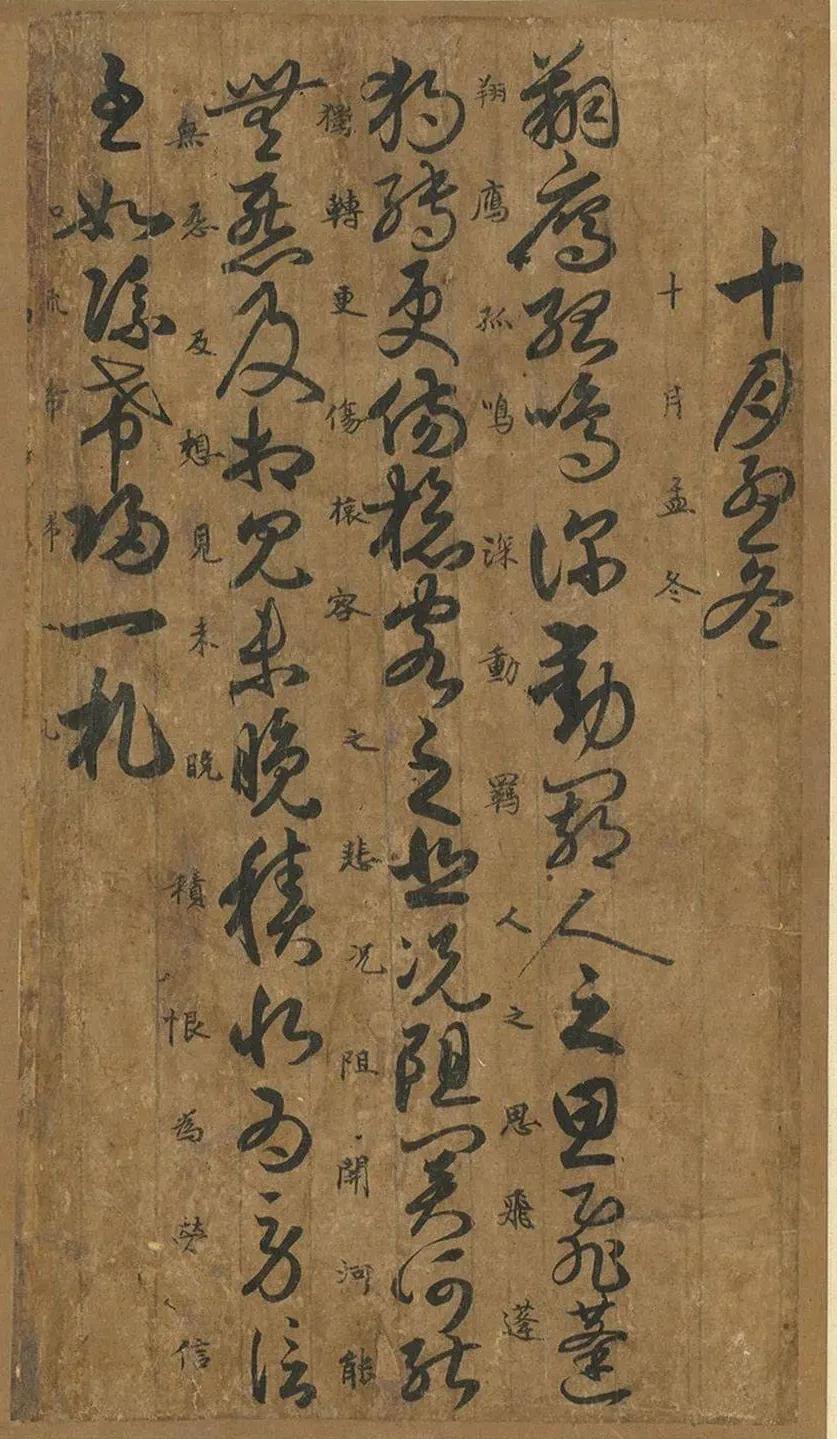 十月孟冬
十月孟冬
翔鷹孤鳴深動羈人之思飛蓬
翔鷹孤鳴深動羈人之思飛蓬
獨轉更傷客之悲況阻關河能
獨轉更傷榱容之悲况阻開河能
無及想見未晚積恨為勞信
無惡及想見未晚積恨為勞信
至如希歸一札